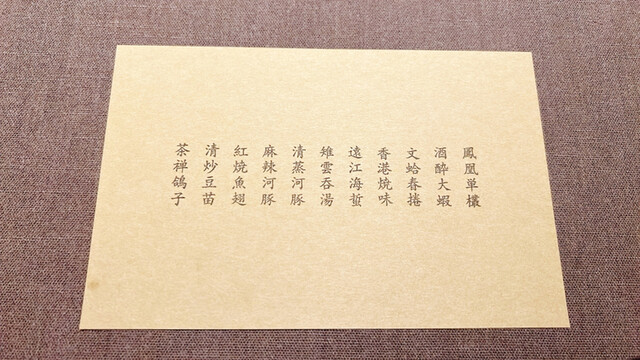 鳳凰單欉
酒醉大蝦
文蛤春捲
香港燒味
遠江海蜇
雉雲吞湯
清蒸河豚
麻辣河豚
紅燒魚翅
清炒豆苗
茶禅鴿子